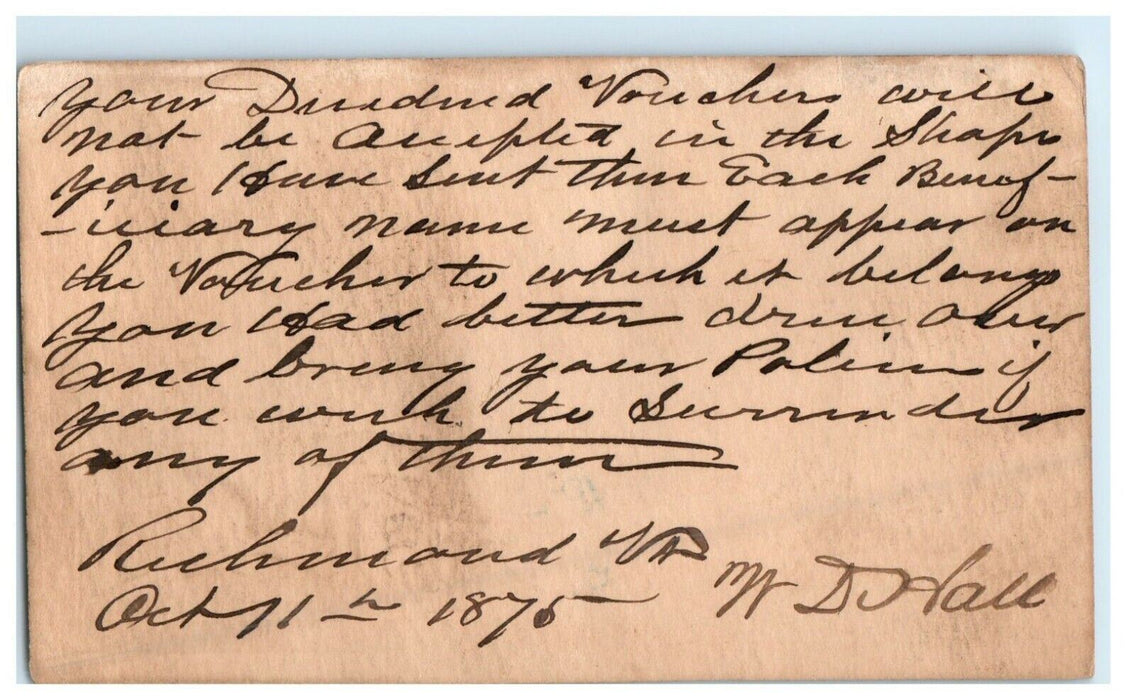 your Dividend Vouchers will
not be accepted in the Shape
you Have Sent them Each Benef-
-iciary name must appear on
the Voucher to which it belongs
you Had better drive over
and bring your Policies if
you wish to Surrender
any of them
Richmond Vt
Oct 11th 1875 W D Hall